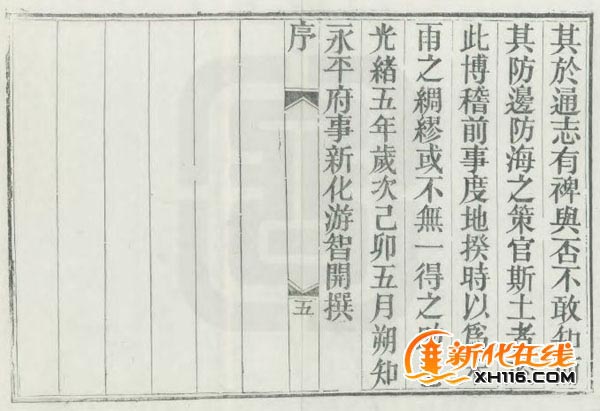 其於通志有裨與否不敢知
其防邊防海之策官斯土者
此博稽前事度地揆時以爲
雨之綢繆或不無一得之
光緒五年歲次己卯五月朔知
永平府事新化游智開撰
序
五
新化在线
XH116.COM